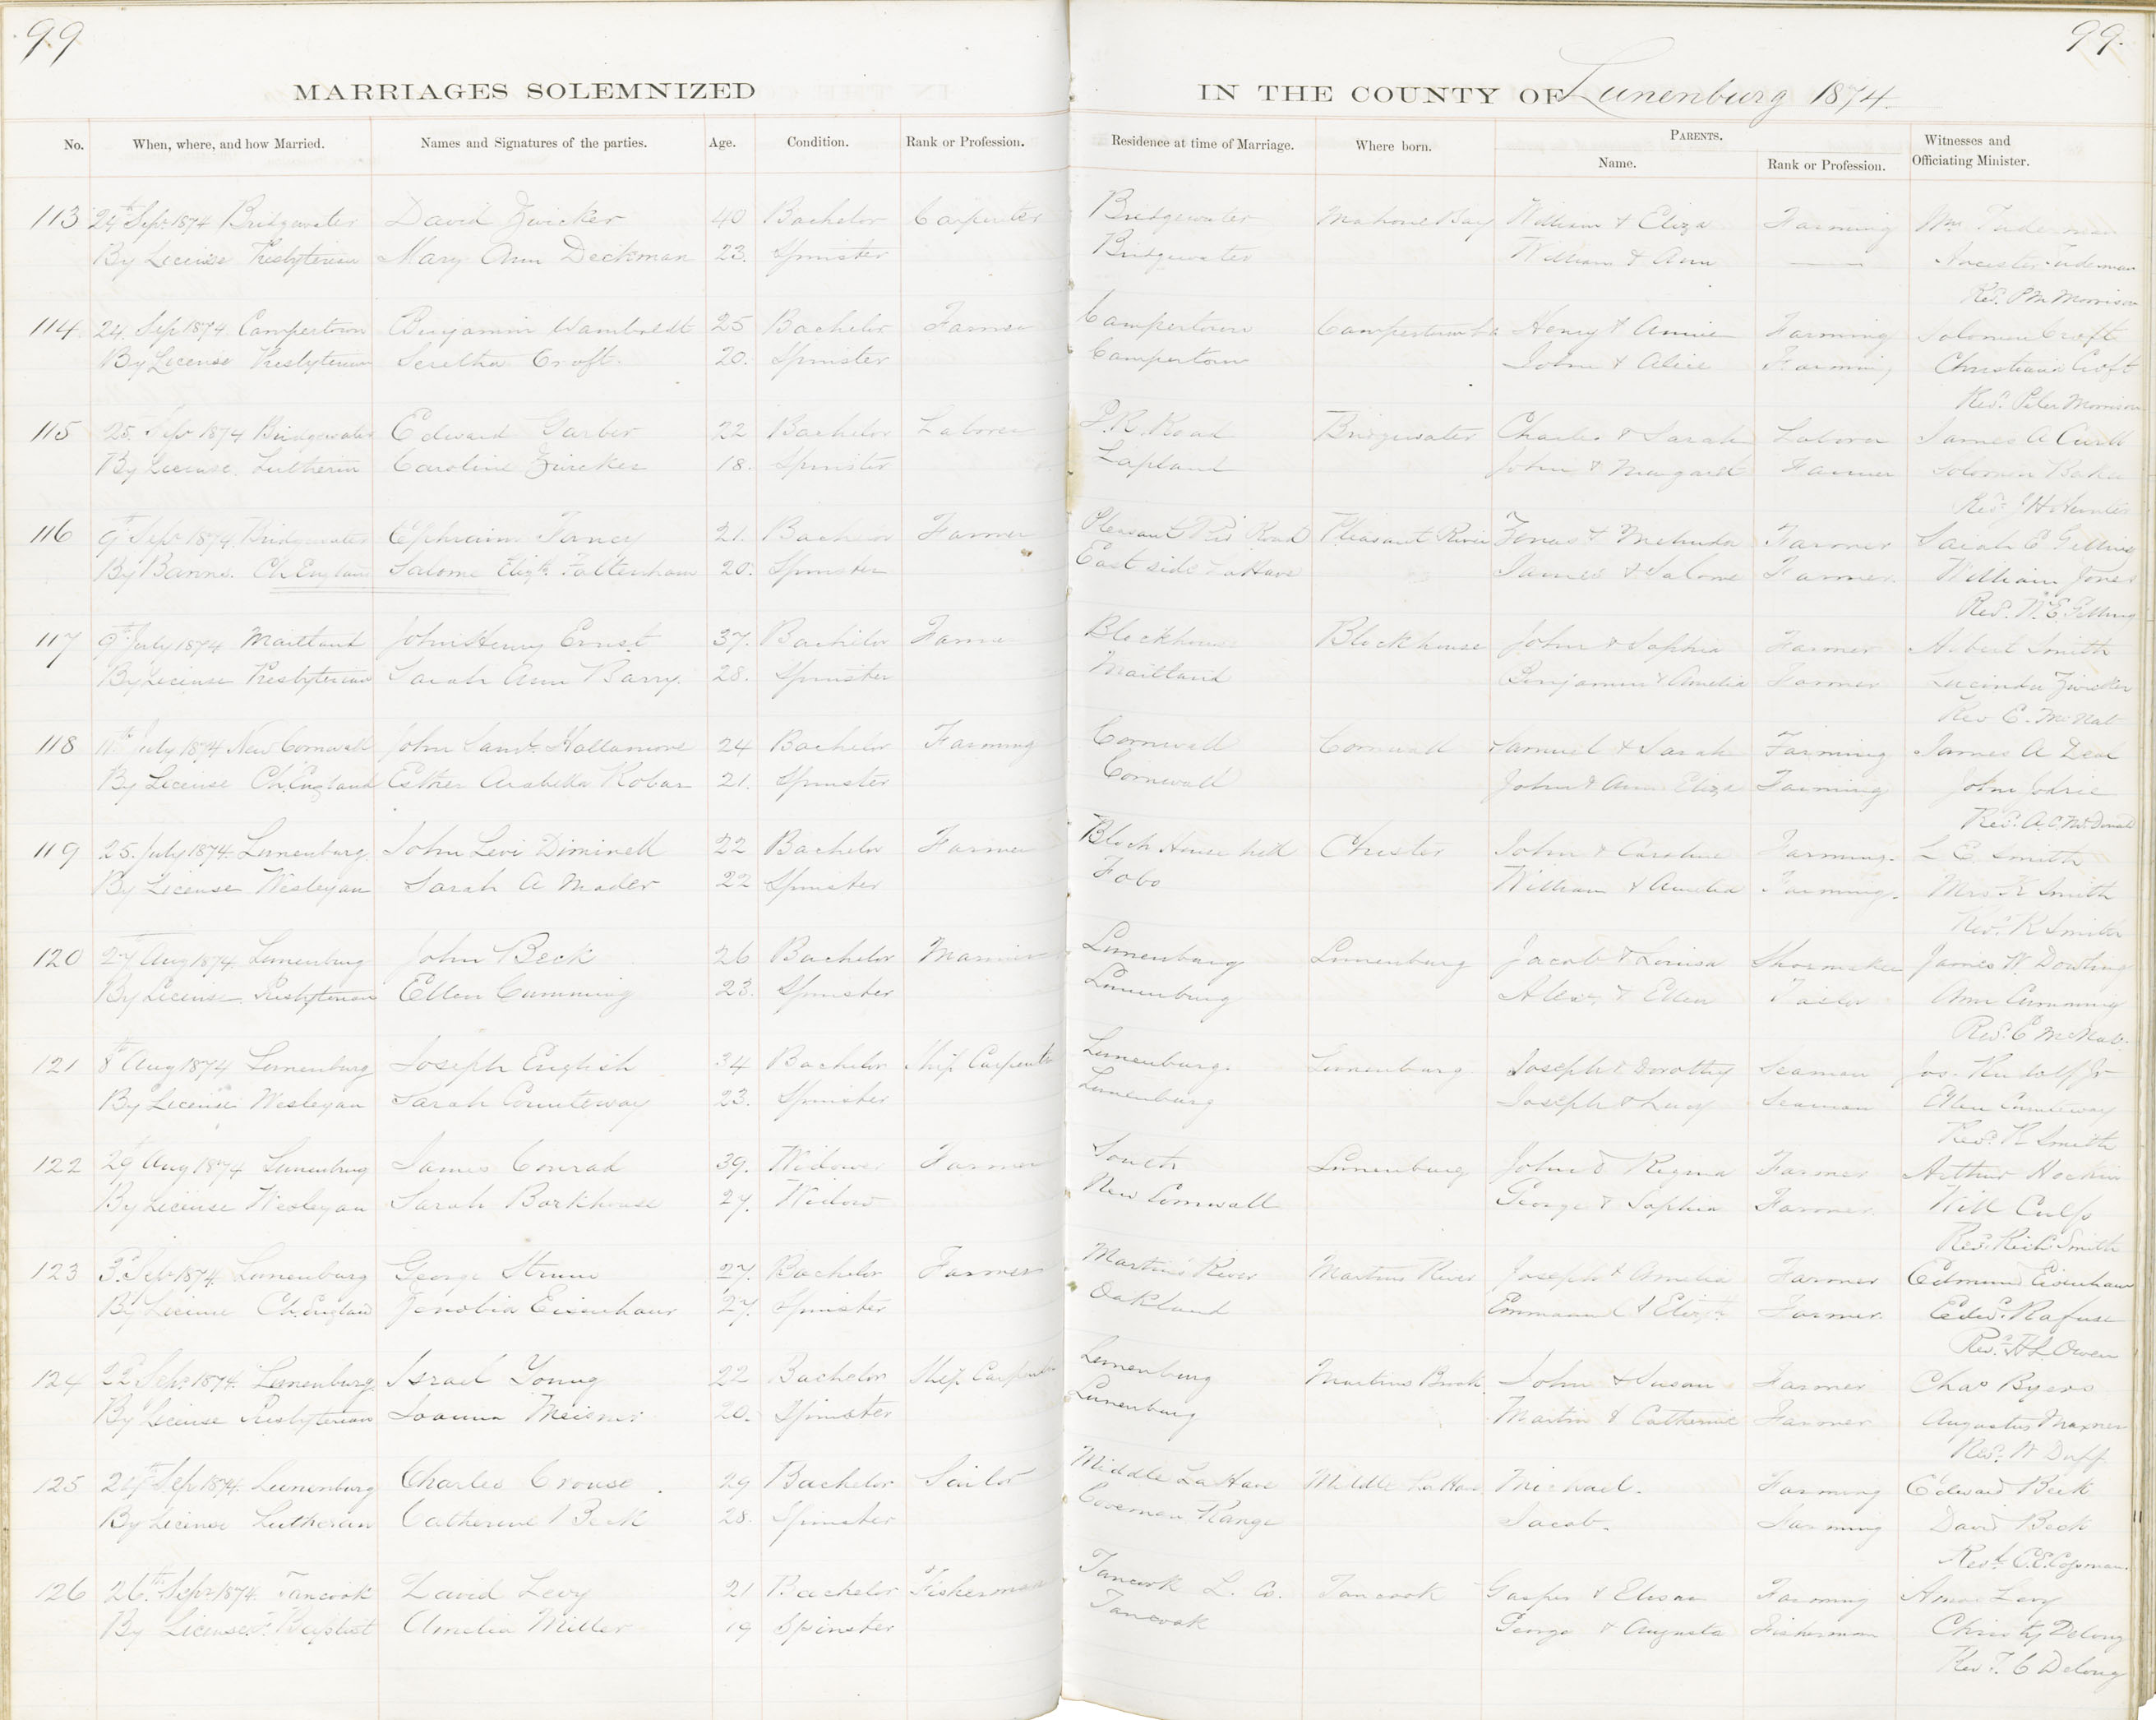 99
99.
MARRIAGES SOLEMNIZED IN THE COUNTY OF Lunenburg 1874.
No. When, where, and how Married. Names and Signatures of the parties. Age. Condition. Rank or Profession. Residence at time of Marriage. Where born. PARENTS. Name. Rank or Profession. Witnesses and Officiating Minister.
113 24th Sept 1874 Bridgewater David Zwicker 40 Bachelor Carpenter Bridgewater Mahone Bay William & Eliza Farming Wm
By License Presbyterian Mary Ann Deckman 23. Spinster Bridgewater William & Ann
Revd. P M Morrison
114 24. Sep 1874 Campertown Benjamin Wamboldt 25 Bachelor Farmer Campertown Henry & Annie Farming Solomon Croft
By License Presbyterian Seretha Croft. 20. Spinster Campertown John & Alice Farming Croft
Revd. Peter Morrison
115 25. Sep 1874 Bridgewater Edward Garber 22 Bachelor Laborer P. R. Road Bridgewater Charles & Sarah Laborer James A Curll
By License. Lutheran Caroline Zwicker 18. Spinster Lapland John & Margaret Farmer Solomon Baker
Revd.
116 9th Sept 1874 Bridgewater Ephraim 21. Bachelor Farmer Pleasant Rivr Road Pleasant River Zenas & Melinda Farmer Sarah E Gelling
By Banns. Ch England Salome Elizth. 20. Spinster East side LaHave James & Salome Farmer. William Jones
Revd. W. E. Gelling
117 9th July 1874 Maitland John Henry Ernst 37. Bachelor Farmer Blockhouse Blockhouse John & Sophia Farmer Albert Smith
By License Presbyterian Sarah Ann Barry. 28. Spinster Maitland Benjamin & Amelia Farmer Lucinda Zwicker
Rev E. McNab
118 11th July 1874 New Cornwall John Saml. Hallamore 24 Bachelor Farming Cornwall Cornwall Samuel & Sarah Farming James A Deal
By License Ch. England Esther Arabella Robar 21. Spinster Cornwall John & Ann Eliza Farming John Jodrie
Revd. A. C. McDonald
119 25. July 1874. Lunenburg. John Levi Diminell 22 Bachelor Farmer Block House hill Chester John & Caroline Farming. L E Smith
By License Wesleyan Sarah A Mader 22 Spinster Fobo William & Amelia Farming. Mrs R Smith
Revd. R Smith
120 27 Aug 1874. Lunenburg John Beck 26 Bachelor Mariner Lunenburg Lunenburg Jacob & Louisa Shoemaker James W. Dowling
By License. Presbyterian Ellen Cumming 23. Spinster Lunenburg Alexr. & Ellen Tailor Ann Cumming
Revd. E McNab.
121 8th Aug 1874 Lunenburg Joseph English 34 Bachelor Ship Carpenter Lunenburg. Lunenburg Joseph & Dorothy Seaman Jos. Rudolf Jr
By License Wesleyan Sarah Counteway 23. Spinster Lunenburg Joseph & Lucy Seaman Ellen Counteway
Revd. R Smith
122 29 Aug 1874 Lunenburg James Conrad 39. Widower Farmer South Lunenburg John & Regina Farmer Arthur Hockin
By License Wesleyan Sarah Barkhouse 27. Widow New Cornwall George & Sophia Farmer. Will Culp
Revd. Richd Smith
123 3d. Sep 1874. Lunenburg George Strum 27. Bachelor Farmer Martins River Martins River Joseph & Amelia Farmer Edmund Eisenhaur
By License Ch. England Zenobia Eisenhaur 27. Spinster Oakland Emmanuel & Elizth. Farmer. Edwd. Rafuse
Revd. H L Owen
124 22d Sept. 1874. Lunenburg. Israel Young 22 Bachelor Ship Carpenter Lunenburg Martins Brook. John & Susan Farmer Chas Byers
By License Presbyterian Joanna Meisner 20. Spinster Lunenburg Martin & Catherine Farmer Augustus Maxner
Revd. W Duff
125 Sep 1874. Lunenburg Charles Crouse. 29 Bachelor Sailor Middle LaHave Middle LaHave Michael. Farming Edward Beck
By License Lutheran Catherine Beck 28. Spinster Range Jacob. Farming David Beck
Revd. C. E. Cossman.
126 26th. Sept 1874. Tancook David Levy 21 Bachelor Fisherman Tancook L. Co. Tancook Gasper & Farming Amos Levy
By License. Baptist Amelia Miller 19 Spinster Tancook George & Augusta Fisherman Delong
Revd. Delong